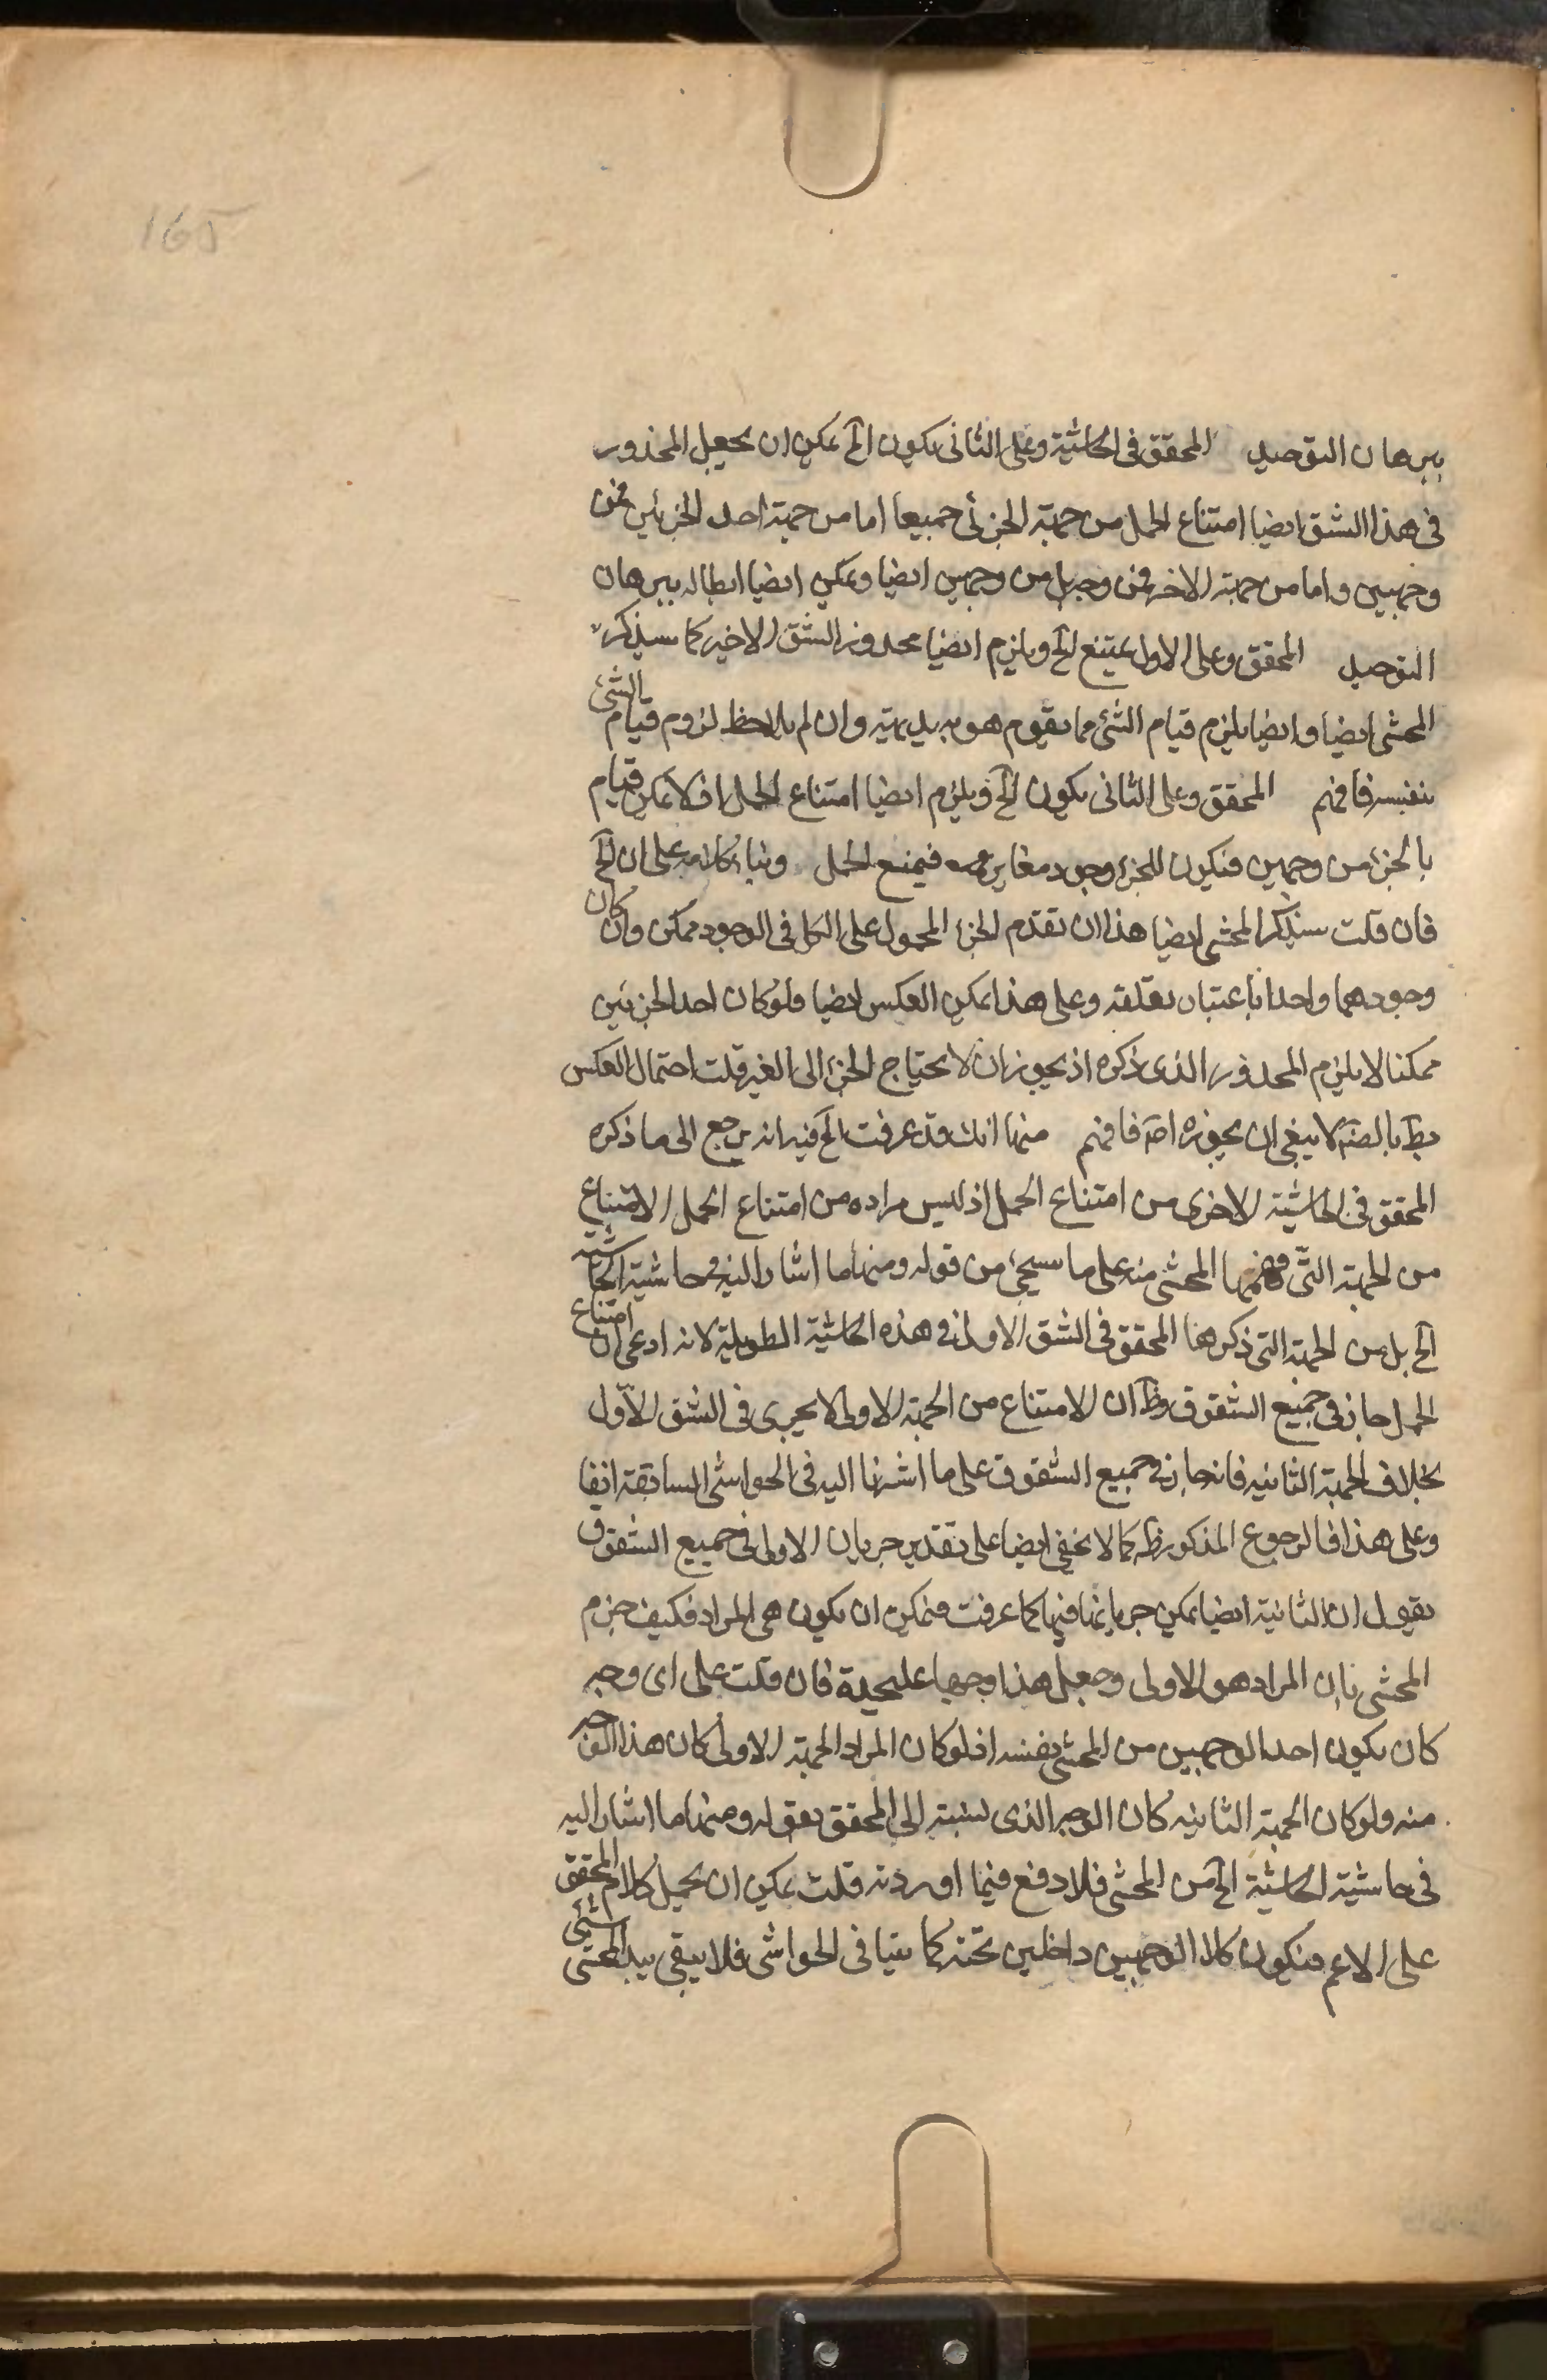 165
ببرهان التوحيد المحقق في الحاشية وعلى الثاني يكون الخ يمكن ان يجعل المحذور
في هذا الشق ايضا امتناع الحمل من جهة الجزئي جميعا اما من جهة احد الجزئين فمن
وجهين واما من جهة الاخر فمن وجه بل من وجهين ايضا ويمكن ايضا ابطاله ببرهان
التوحيد المحقق وعلى الاول يمتنع الخ ويلزم ايضا محذور الشق الاخير كما سيذكره
المحشي ايضا وايضا يلزم قيام الشئ مما يقوم هو به بديهية وان لم يلاحظ لزوم قيام الشئ
بنفسه فافهم المحقق وعلى الثاني يكون الخ ويلزم ايضا امتناع الحمل اذ لا يمكن قيام
بالجزء من وجهين فيكون للجزء وجود مغاير فيمنع الحمل وبناء كلامه على ان الخ
فان قلت سيذكر المحشي ايضا هذا ان تقدم الجزء المحمول على الكل في الوجود ممكن وان كان
وجودهما واحدا باعتبار تعلقه وعلى هذا يمكن العكس ايضا ولو كان احد الجزئين
ممكنا لا يلزم المحذور الذي ذكره اذ يجوز ان لا يحتاج الجزء الى الغير قلت احتمال العكس
بط بالضم لا ينبغي ان يجوزه اصم فافهم منها انك قد عرفت الخ فيه انه يرجع الى ما ذكره
المحقق في الحاشية الاخرى من امتناع الحمل اذ ليس مراده من امتناع الحمل الامتناع
من الجهة التي فهمها المحشي منه على ما سيجئ من قوله ومنها ما اشار اليه في حاشية الحاشية
الخ بل من الجهة التي ذكرها المحقق في الشق الاول في هذه الحاشية الطويلة لانه ادعى ان امتناع
الحمل جار في جميع الشقوق وظ ان الامتناع من الجهة الاولى لا يجرى في الشق الاول
بخلاف الجهة الثانيه فانه جار في جميع الشقوق على ما اشرنا اليه في الحواشي السابقة انفا
وعلى هذا فالرجوع المذكور ظ كما لا يخفى ايضا على تقدير جريان الاولى في جميع الشقوق
نقول ان الثانية ايضا يمكن جريانها فيها كما عرفت فيمكن ان يكون هي المراد فكيف جزم
المحشي بان المراد هو الاولى وجعل هذا وجها عليحدة فان قلت على اى وجه
كان يكون احد الوجهين من المحشي نفسه اذ لو كان المراد الجهة الاولى كان هذا الوجه
منه ولو كان الجهة الثانيه كان الوجه الذى نسبته الى المحقق بقوله ومنها ما اشار اليه
في حاشية الحاشية الخ من المحشي فلا دفع فيما اوردته قلت يمكن ان يحمل كلام المحقق
على الاعم فيكون كلا الوجهين داخلين تحته كما بينا في الحواشي فلا يبقى بيد المحشي شئ